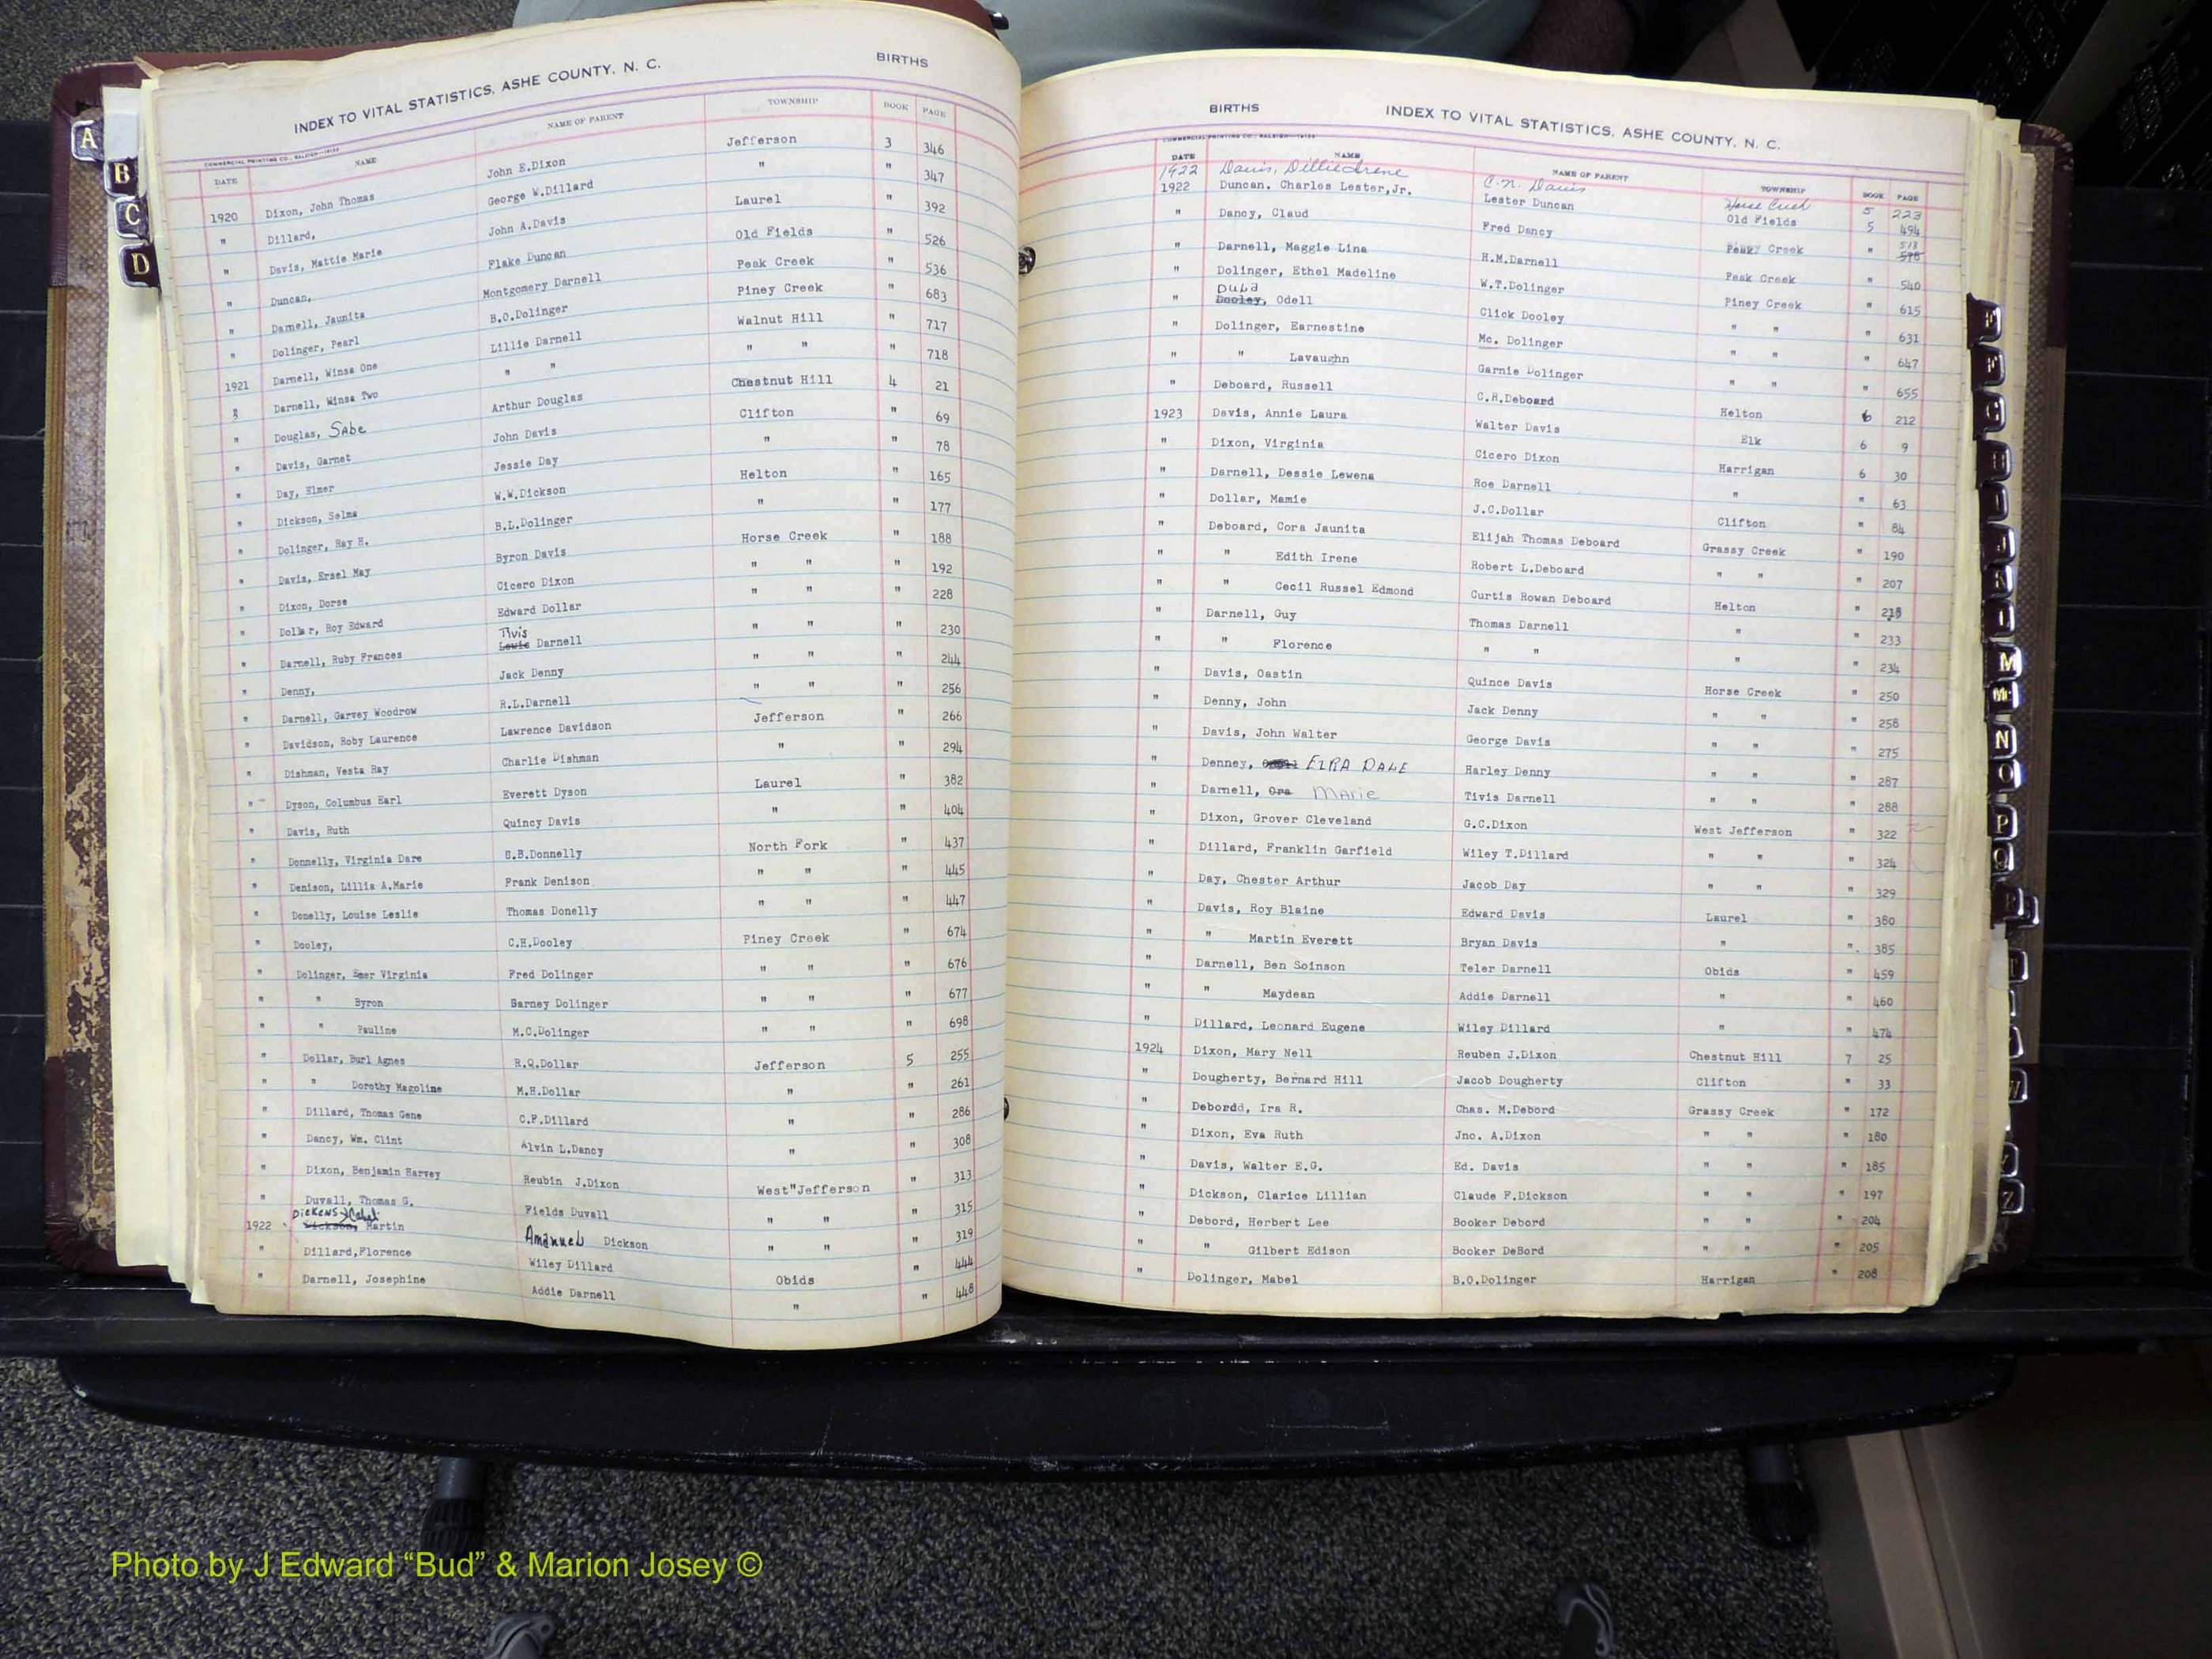 INDEX TO VITAL STATISTICS, ASHE COUNTY, N. C. BIRTHS
COMMERCIAL PRINTING CO., RALEIGH
DATE NAME NAME OF PARENT TOWNSHIP BOOK PAGE
1920 Dixon, John Thomas John E.Dixon Jefferson 3 346
" Dillard, George W.Dillard " " 347
" Davis, Mattie Marie John A.Davis Laurel " 392
" Duncan, Flake Duncan Old Fields " 526
" Darnell, Jaunita Montgomery Darnell Peak Creek " 536
" Dolinger, Pearl B.O.Dolinger Piney Creek " 683
1921 Darnell, Winsa One Lillie Darnell Walnut Hill " 717
Darnell, Winsa Two " " " " " 718
" Douglas, Sabe Arthur Douglas Chestnut Hill 4 21
" Davis, Garnet John Davis Clifton " 69
" Day, Elmer Jessie Day " " 78
" Dickson, Selma W.W.Dickson Helton " 165
" Dolinger, Ray H. B.L.Dolinger " " 177
" Davis, Ersel May Byron Davis Horse Creek " 188
" Dixon, Dorse Cicero Dixon " " " 192
" Dollar, Roy Edward Edward Dollar " " " 228
" Darnell, Ruby Frances Tivis Lewis Darnell " " " 230
" Denny, Jack Denny " " " 244
" Darnell, Garvey Woodrow R.L.Darnell " " " 256
" Davidson, Roby Laurence Lawrence Davidson Jefferson " 266
" Dishman, Vesta Ray Charlie Dishman " " 294
" Dyson, Columbus Earl Everett Dyson Laurel " 382
" Davis, Ruth Quincy Davis " " 404
" Donnelly, Virginia Dare S.B.Donnelly North Fork " 437
" Denison, Lillis A.Marie Frank Denison " " " 445
" Donelly, Louise Leslie Thomas Donelly " " " 447
" Dooley, C.H.Dooley Piney Creek " 674
" Dolinger, Emer Virginia Fred Dolinger " " " 676
" " Byron Barney Dolinger " " " 677
" " Pauline M.C.Dolinger " " " 698
" Dollar, Burl Agnes R.Q.Dollar Jefferson 5 255
" " Dorothy Magoline M.H.Dollar " " 261
" Dillard, Thomas Gene C.F.Dillard " " 286
" Dancy, Wm. Clint Alvin L.Dancy " " 308
" Dixon, Benjamin Harvey Reubin J.Dixon West"Jefferson " 313
" Duvall, Thomas G. Fields Duvall " " " 315
1922 DICKENS Dickson, Martin Amanuel Dickson " " " 319
" Dillard,Florence Wiley Dillard Obids " 444
" Darnell, Josephine Addie Darnell " " 448
BIRTHS INDEX TO VITAL STATISTICS, ASHE COUNTY, N. C.
COMMERCIAL PRINTING CO., RALEIGH
DATE NAME NAME OF PARENT TOWNSHIP BOOK PAGE
1922 Davis, Dillie Irene C.N. Davis Horse Creek 5 223
1922 Duncan, Charles Lester,Jr. Lester Duncan Old Fields 5 494
" Dancy, Claud Fred Dancy Peak Creek " 518 598
" Darnell, Maggie Lina H.M.Darnell Peak Creek " 540
" Dolinger, Ethel Madeline W.T.Dolinger Piney Creek " 615
" Dula Dooley, Odell Click Dooley " " " 631
" Dolinger, Earnestine Mc. Dolinger " " " 647
" " Lavaughn Garnie Dolinger " " " 655
" Deboard, Russell C.R.Deboard Helton 6 212
1923 Davis, Annie Laura Walter Davis Elk 6 9
" Dixon, Virginia Cicero Dixon Harrigan 6 30
" Darnell, Dessie Lewena Roe Darnell " " 63
" Dollar, Mamie J.C.Dollar Clifton " 84
" Deboard, Cora Jaunita Elijah Thomas Deboard Grassy Creek " 190
" " Edith Irene Robert L.Deboard " " " 207
" " Cecil Russel Edmond Curtis Rowan Deboard Helton " 218
" Darnell, Guy Thomas Darnell " " 233
" " Florence " " " " 234
" Davis, Oastin Quince Davis Horse Creek " 250
" Denny, John Jack Denny " " " 258
" Davis, John Walter George Davis " " " 275
" Denney, EZRA DALE Harley Denny " " " 287
" Darnell, Ora Marie Tivis Darnell " " " 288
" Dixon, Grover Cleveland G.C.Dixon West Jefferson " 322
" Dillard, Franklin Garfield Wiley T.Dillard " " " 324
" Day, Chester Arthur Jacob Day " " " 329
" Davis, Roy Blaine Edward Davis Laurel " 380
" " Martin Everett Bryan Davis " " 385
" Darnell, Ben Soinson Teler Darnell Obids " 459
" " Maydean Addie Darnell " " 460
" Dillard, Leonard Eugene Wiley Dillard " " 474
1924 Dixon, Mary Nell Reuben J.Dixon Chestnut Hill 7 25
" Dougherty, Bernard Hill Jacob Dougherty Clifton " 33
" Debordd, Ira R. Chas. M.Debord Grassy Creek " 172
" Dixon, Eva Ruth Jno. A.Dixon " " " 180
" Davis, Walter E.G. Ed. Davis " " " 185
" Dickson, Clarice Lillian Claude F.Dickson " " " 197
" Debord, Herbert Lee Booker Debord " " " 204
" " Gilbert Edison Booker DeBord " " " 205
" Dolinger, Mabel B.O.Dolinger Harrigan " 208
A
B
C
D
M
Mc
N
O
P
Q
Photo by J Edward “Bud” & Marion Josey ©